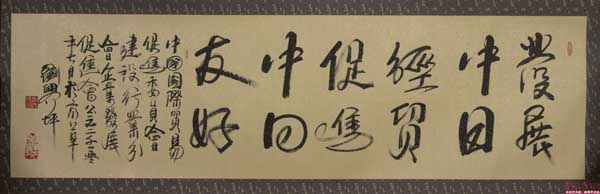 發展
中日
經貿
促進
中日
友好
中國國際貿易
促進委員會
建設行業分
會企業發展
促進會公元二
年七月於